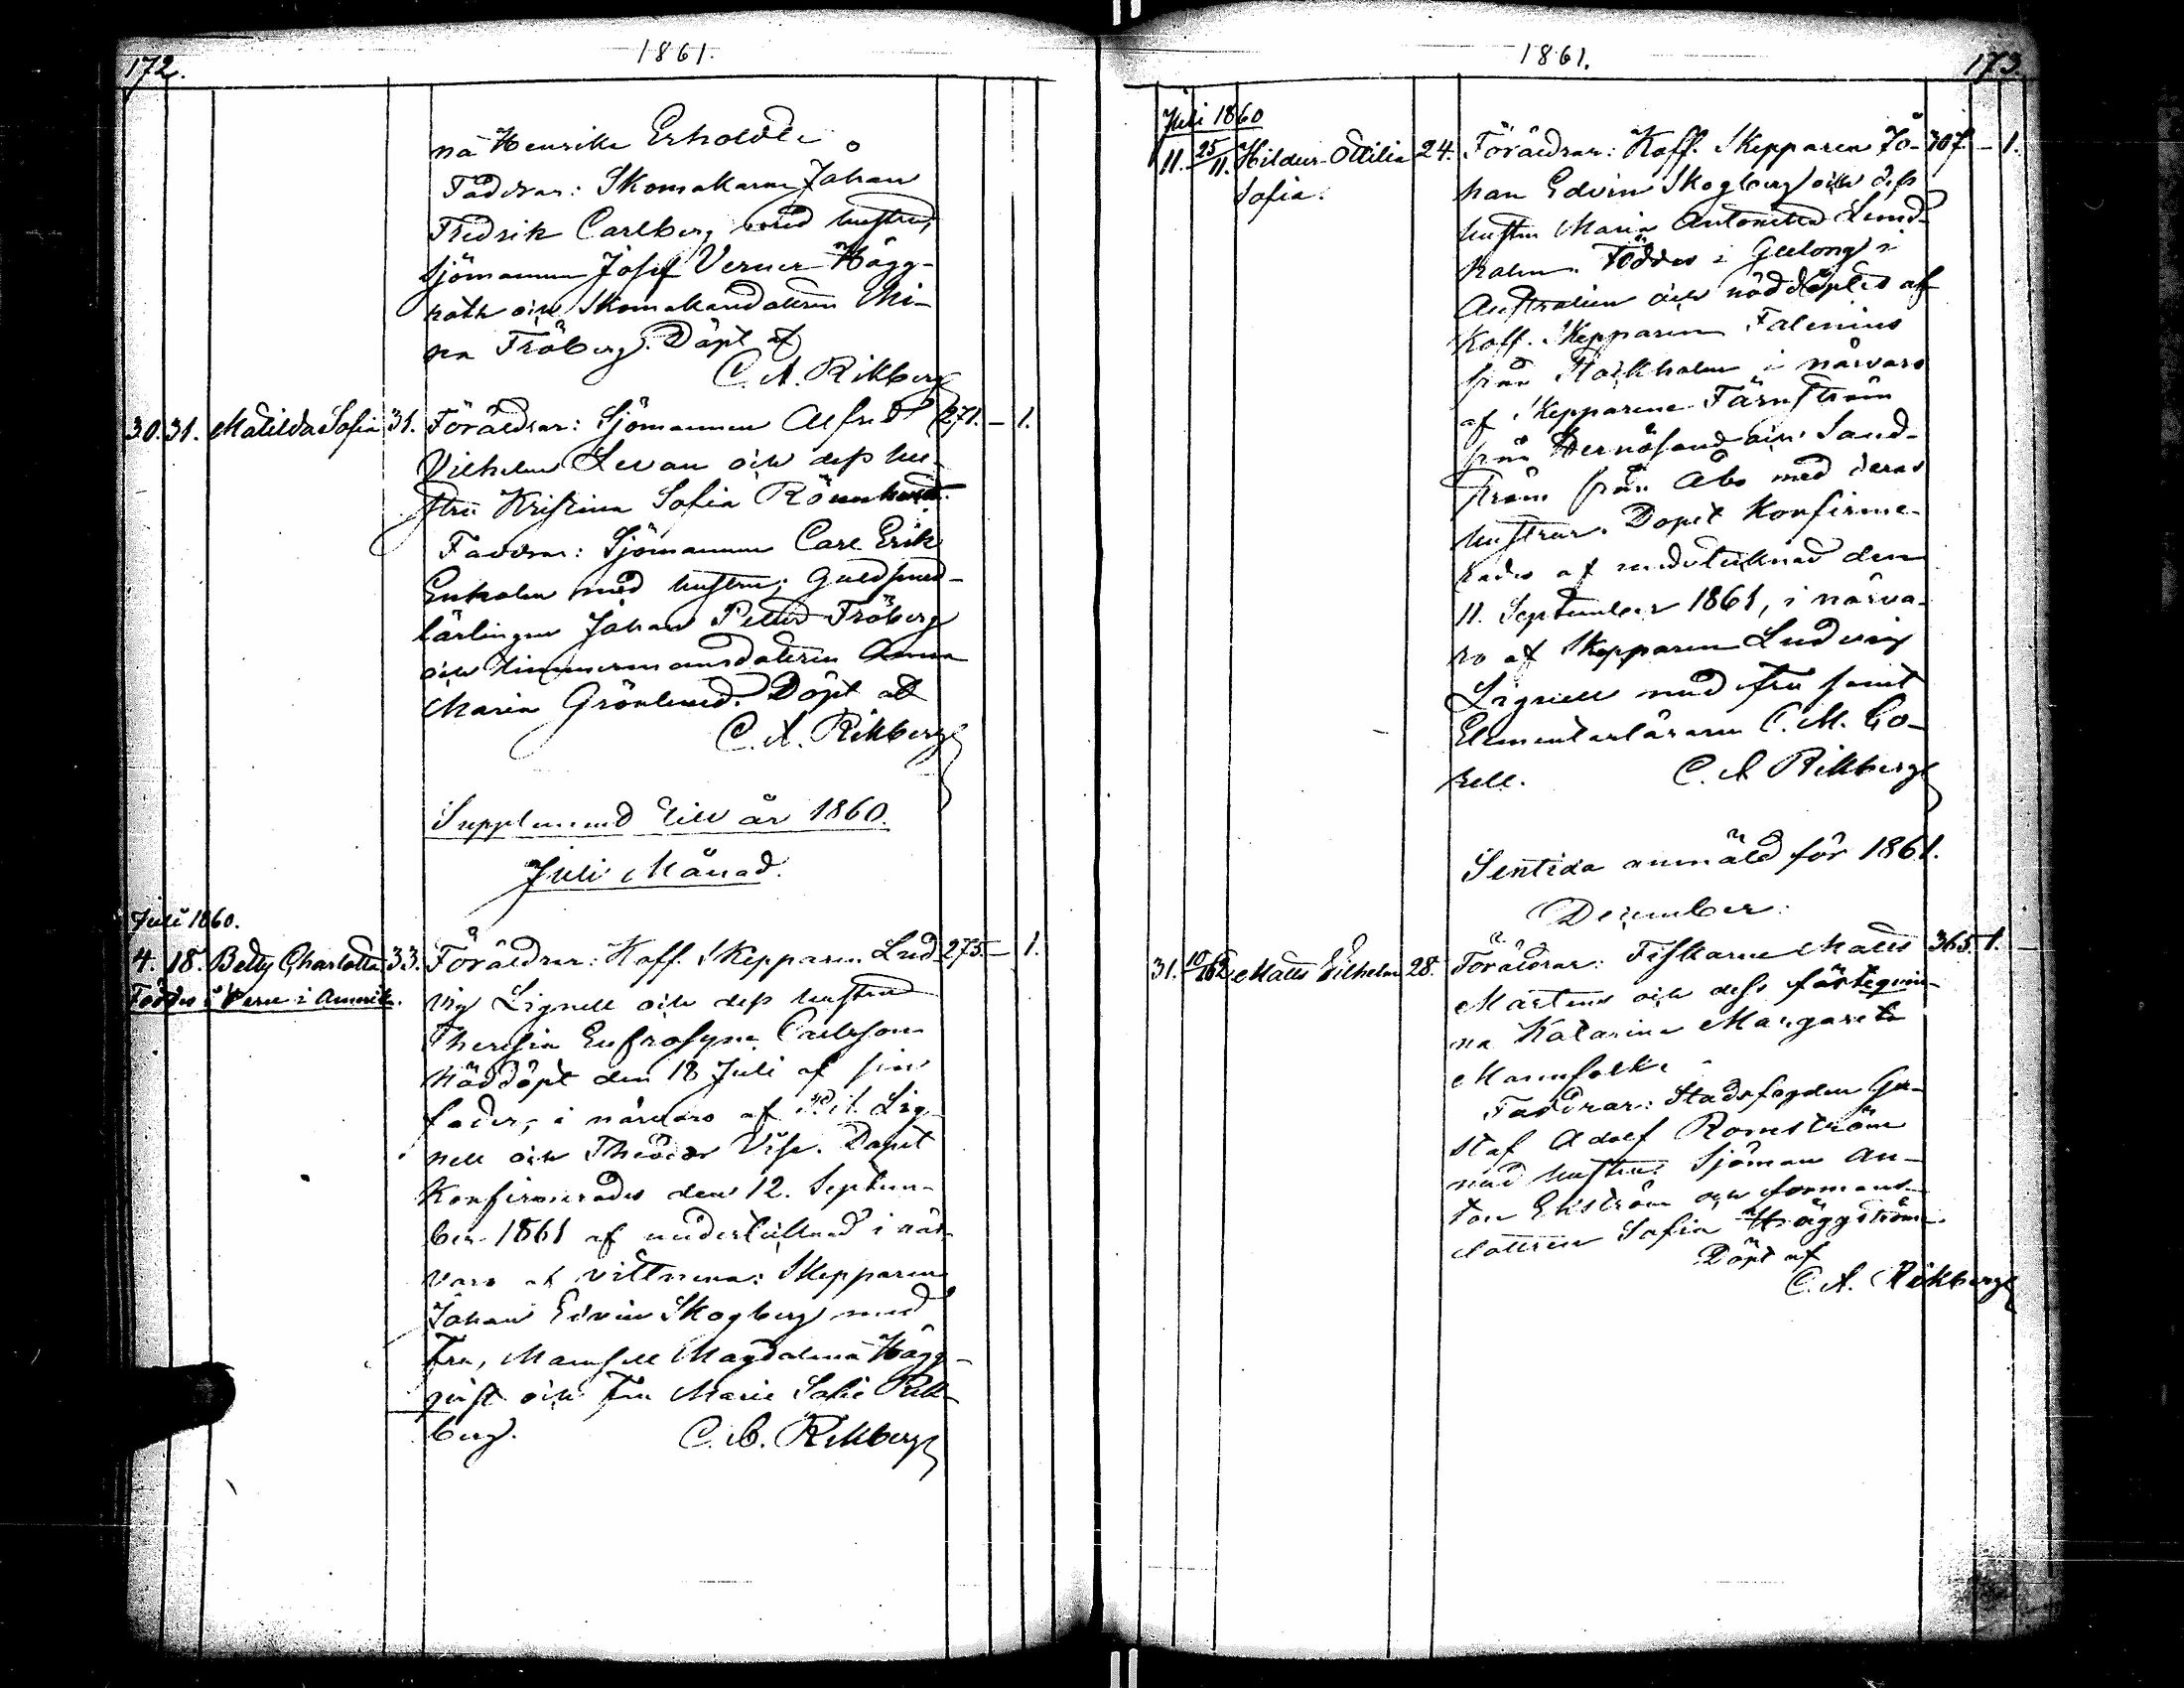 172.
1861.
na Henrika Erholdtz
Faddrar: Skomakarne Johan
Fredrik Carlberg med hustru,
Sjömannen Josef Verner Hägg-
roth och Skomakaredottren Mi-
na Fröberg. Döpt af
C. A. Rikberg
30. 31. Matilda Sofia 31. Föräldrar: Sjömannen Alfred 271. – 1.
Vilhelm Levan och dess hu-
stru Kristina Sofia
Faddrar: Sjömannen Carl Erik
Enholm med hustru, Guldsmed-
lärlingen Johan Petter Fröberg
och timmermansdottren Anna
Maria Grönlund. Döpt af
C. A. Rikberg
Supplement till år 1860.
Juli Månad.
Juli 1860.
4. 18. Betty Charlotta 33. Föräldrar: Koff. Skepparen Lud 275. – 1.
Föddes i Peru i Amerika.
vig Lignell och dess hustru
Theresia Eufrosyne Carlsson
Nöddöpt den 18 Juli af sin
fader, i närvaro af Lig-
nell och Theodor Dopet
Konfirmerades den 12. Septem-
ber 1861 af undertecknad i när-
varo af vittnena: Skepparen
Johan Edvin Skogberg med
Fru, Mamsell Magdalena Hägg-
qvist och Fru Maria Sofia Rik-
berg. C. A. Rikberg
1861.
173.
Juli 1860
11. 25/11. Hildur Ottilia 24. Föräldrar: Koff. Skepparen Jo- 307. – 1.
Sofia.
han Edvin Skogberg och dess
hustru Maria Antonetta Lind-
holm. Föddes i Geelong i
Australien och nöddöptes af
Koff. Skepparen Falenius
från Stockholm i närvaro
af Skepparene Färnström
från Hernösand och Sand-
ström från Åbo med deras
hustrur. Dopet Konfirme-
rades af undertecknad den
11. September 1861, i närva-
ro af Skepparen Ludvig
Lignell med fru samt
Elementarläraren C. M. Co-
rell. C. A. Rikberg
Sentida anmäld för 1861.
December.
31. 10/1 62 Matts Vilhelm 28. Föräldrar: Fiskaren Matts 365. 1.
Mårtens och dess fästeqvin-
na Katarina Margareta
Mannfolk.
Faddrar: Stadsfogden Gu-
staf Adolf Romström
med hustru; Sjöman An-
ton Ekström och formans-
dottren Sofia Häggström.
Döpt af
C. A. Rikberg